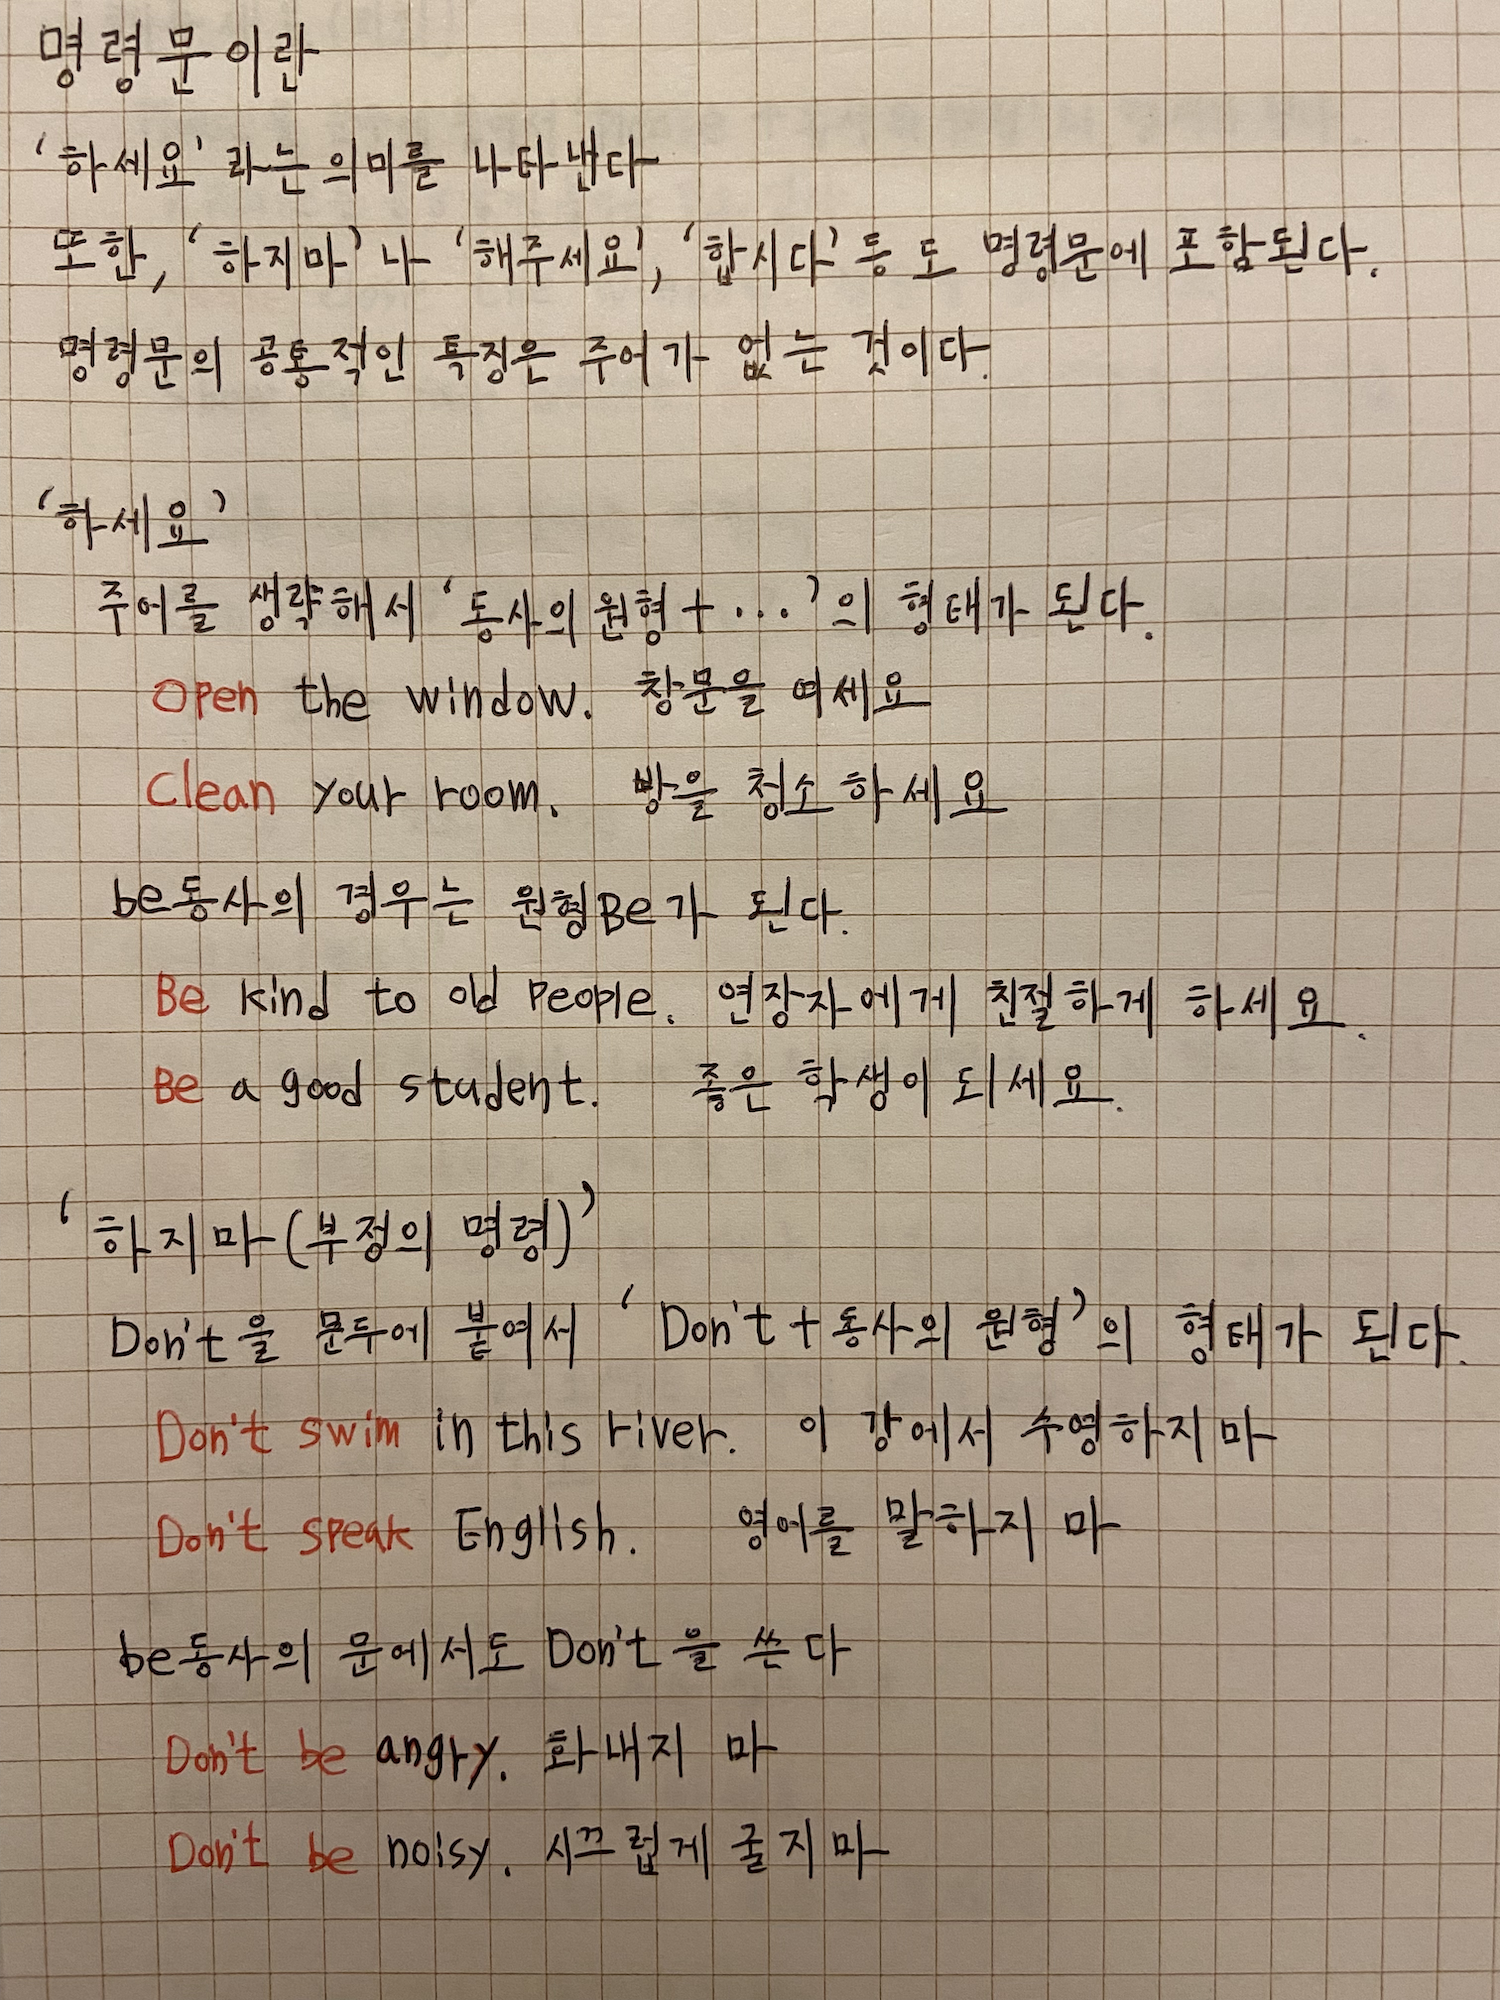 명령문이란
'하세요' 라는 의미를 나타낸다
또한, '하지마' 나 '해주세요', '합시다' 등도 명령문에 포함된다.
명령문의 공통적인 특징은 주어가 없는 것이다.
'하세요'
주어를 생략해서 '동사의 원형 + ...'의 형태가 된다.
Open the window. 창문을 여세요
Clean your room. 방을 청소하세요
be동사의 경우는 원형Be가 된다.
Be kind to old people. 연장자에게 친절하게 하세요.
Be a good student. 좋은 학생이 되세요.
'하지마(부정의 명령)'
Don't을 문두에 붙여서 'Don't + 동사의 원형'의 형태가 된다.
Don't swim in this river. 이 강에서 수영하지마
Don't speak English. 영어를 말하지 마
be동사의 문에서도 Don't을 쓴다
Don't be angry. 화내지 마
Don't be noisy. 시끄럽게 굴지마